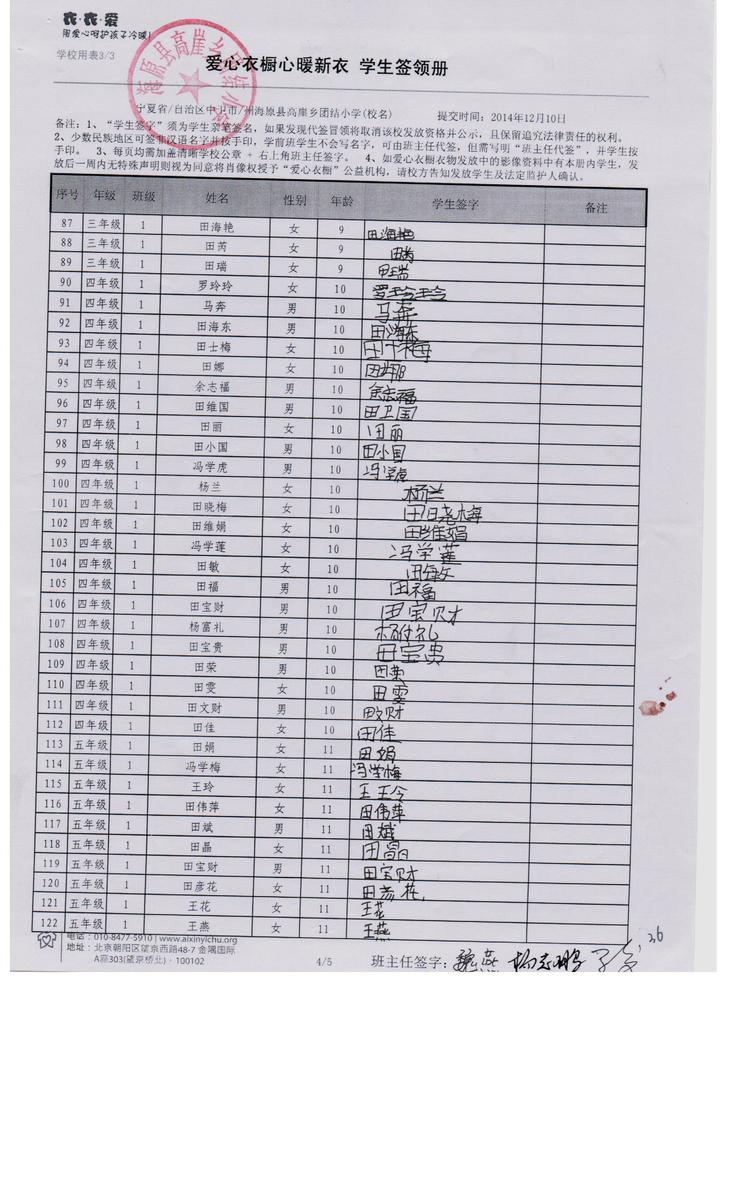 衣·衣·爱
用爱心呵护孩子冷暖!
学校用表3/3
爱心衣橱心暖新衣 学生签领册
宁夏省/自治区中卫市/州海原县高崖乡团结小学(校名) 提交时间：2014年12月10日
备注：1、“学生签字”须为学生亲笔签名，如果发现代签冒领将取消该校发放资格并公示，且保留追究法律责任的权利。
2、少数民族地区可签非汉语名字并按手印，学前班学生不会写名字，可由班主任代签，但需写明“班主任代签”，并学生按
手印。 3、每页均需加盖清晰学校公章 + 右上角班主任签字。 4、如爱心衣橱衣物发放中的影像资料中有本册内学生，发
放后一周内无特殊声明则视为同意将肖像权授予“爱心衣橱”公益机构，请校方告知发放学生及法定监护人确认。
序号 年级 班级 姓名 性别 年龄 学生签字 备注
87 三年级 1 田海艳 女 9 田海艳
88 三年级 1 田芮 女 9 田芮
89 三年级 1 田瑞 女 9 田瑞
90 四年级 1 罗玲玲 女 10 罗玲玲
91 四年级 1 马奔 男 10 马奔
92 四年级 1 田海东 男 10 田海东
93 四年级 1 田士梅 女 10 田下梅
94 四年级 1 田娜 女 10 田娜
95 四年级 1 余志福 男 10 余志福
96 四年级 1 田维国 男 10 田卫国
97 四年级 1 田丽 女 10 田丽
98 四年级 1 田小国 男 10 田小国
99 四年级 1 冯学虎 男 10 冯学虎
100 四年级 1 杨兰 女 10 杨兰
101 四年级 1 田晓梅 女 10 田晓梅
102 四年级 1 田维娟 女 10 田维娟
103 四年级 1 冯学莲 女 10 冯学莲
104 四年级 1 田敏 女 10 田敏
105 四年级 1 田福 男 10 田福
106 四年级 1 田宝财 男 10 田宝财
107 四年级 1 杨富礼 男 10 杨付礼
108 四年级 1 田宝贵 男 10 田宝贵
109 四年级 1 田荣 男 10 田荣
110 四年级 1 田雯 女 10 田雯
111 四年级 1 田文财 男 10 田文财
112 四年级 1 田佳 女 10 田佳
113 五年级 1 田娟 女 11 田娟
114 五年级 1 冯学梅 女 11 冯学梅
115 五年级 1 王玲 女 11 王玲
116 五年级 1 田伟萍 女 11 田伟萍
117 五年级 1 田斌 男 11 田斌
118 五年级 1 田晶 女 11 田晶
119 五年级 1 田宝财 男 11 田宝财
120 五年级 1 田彦花 女 11 田彦花
121 五年级 1 王花 女 11 王花
122 五年级 1 王燕 女 11 王燕
电话：010-8477-5910 | www.aixinyichu.org
地址：北京朝阳区望京西路48-7 金隅国际
A座303(望京桥北)·100102
4/5 班主任签字：魏燕 杨志鹏
36